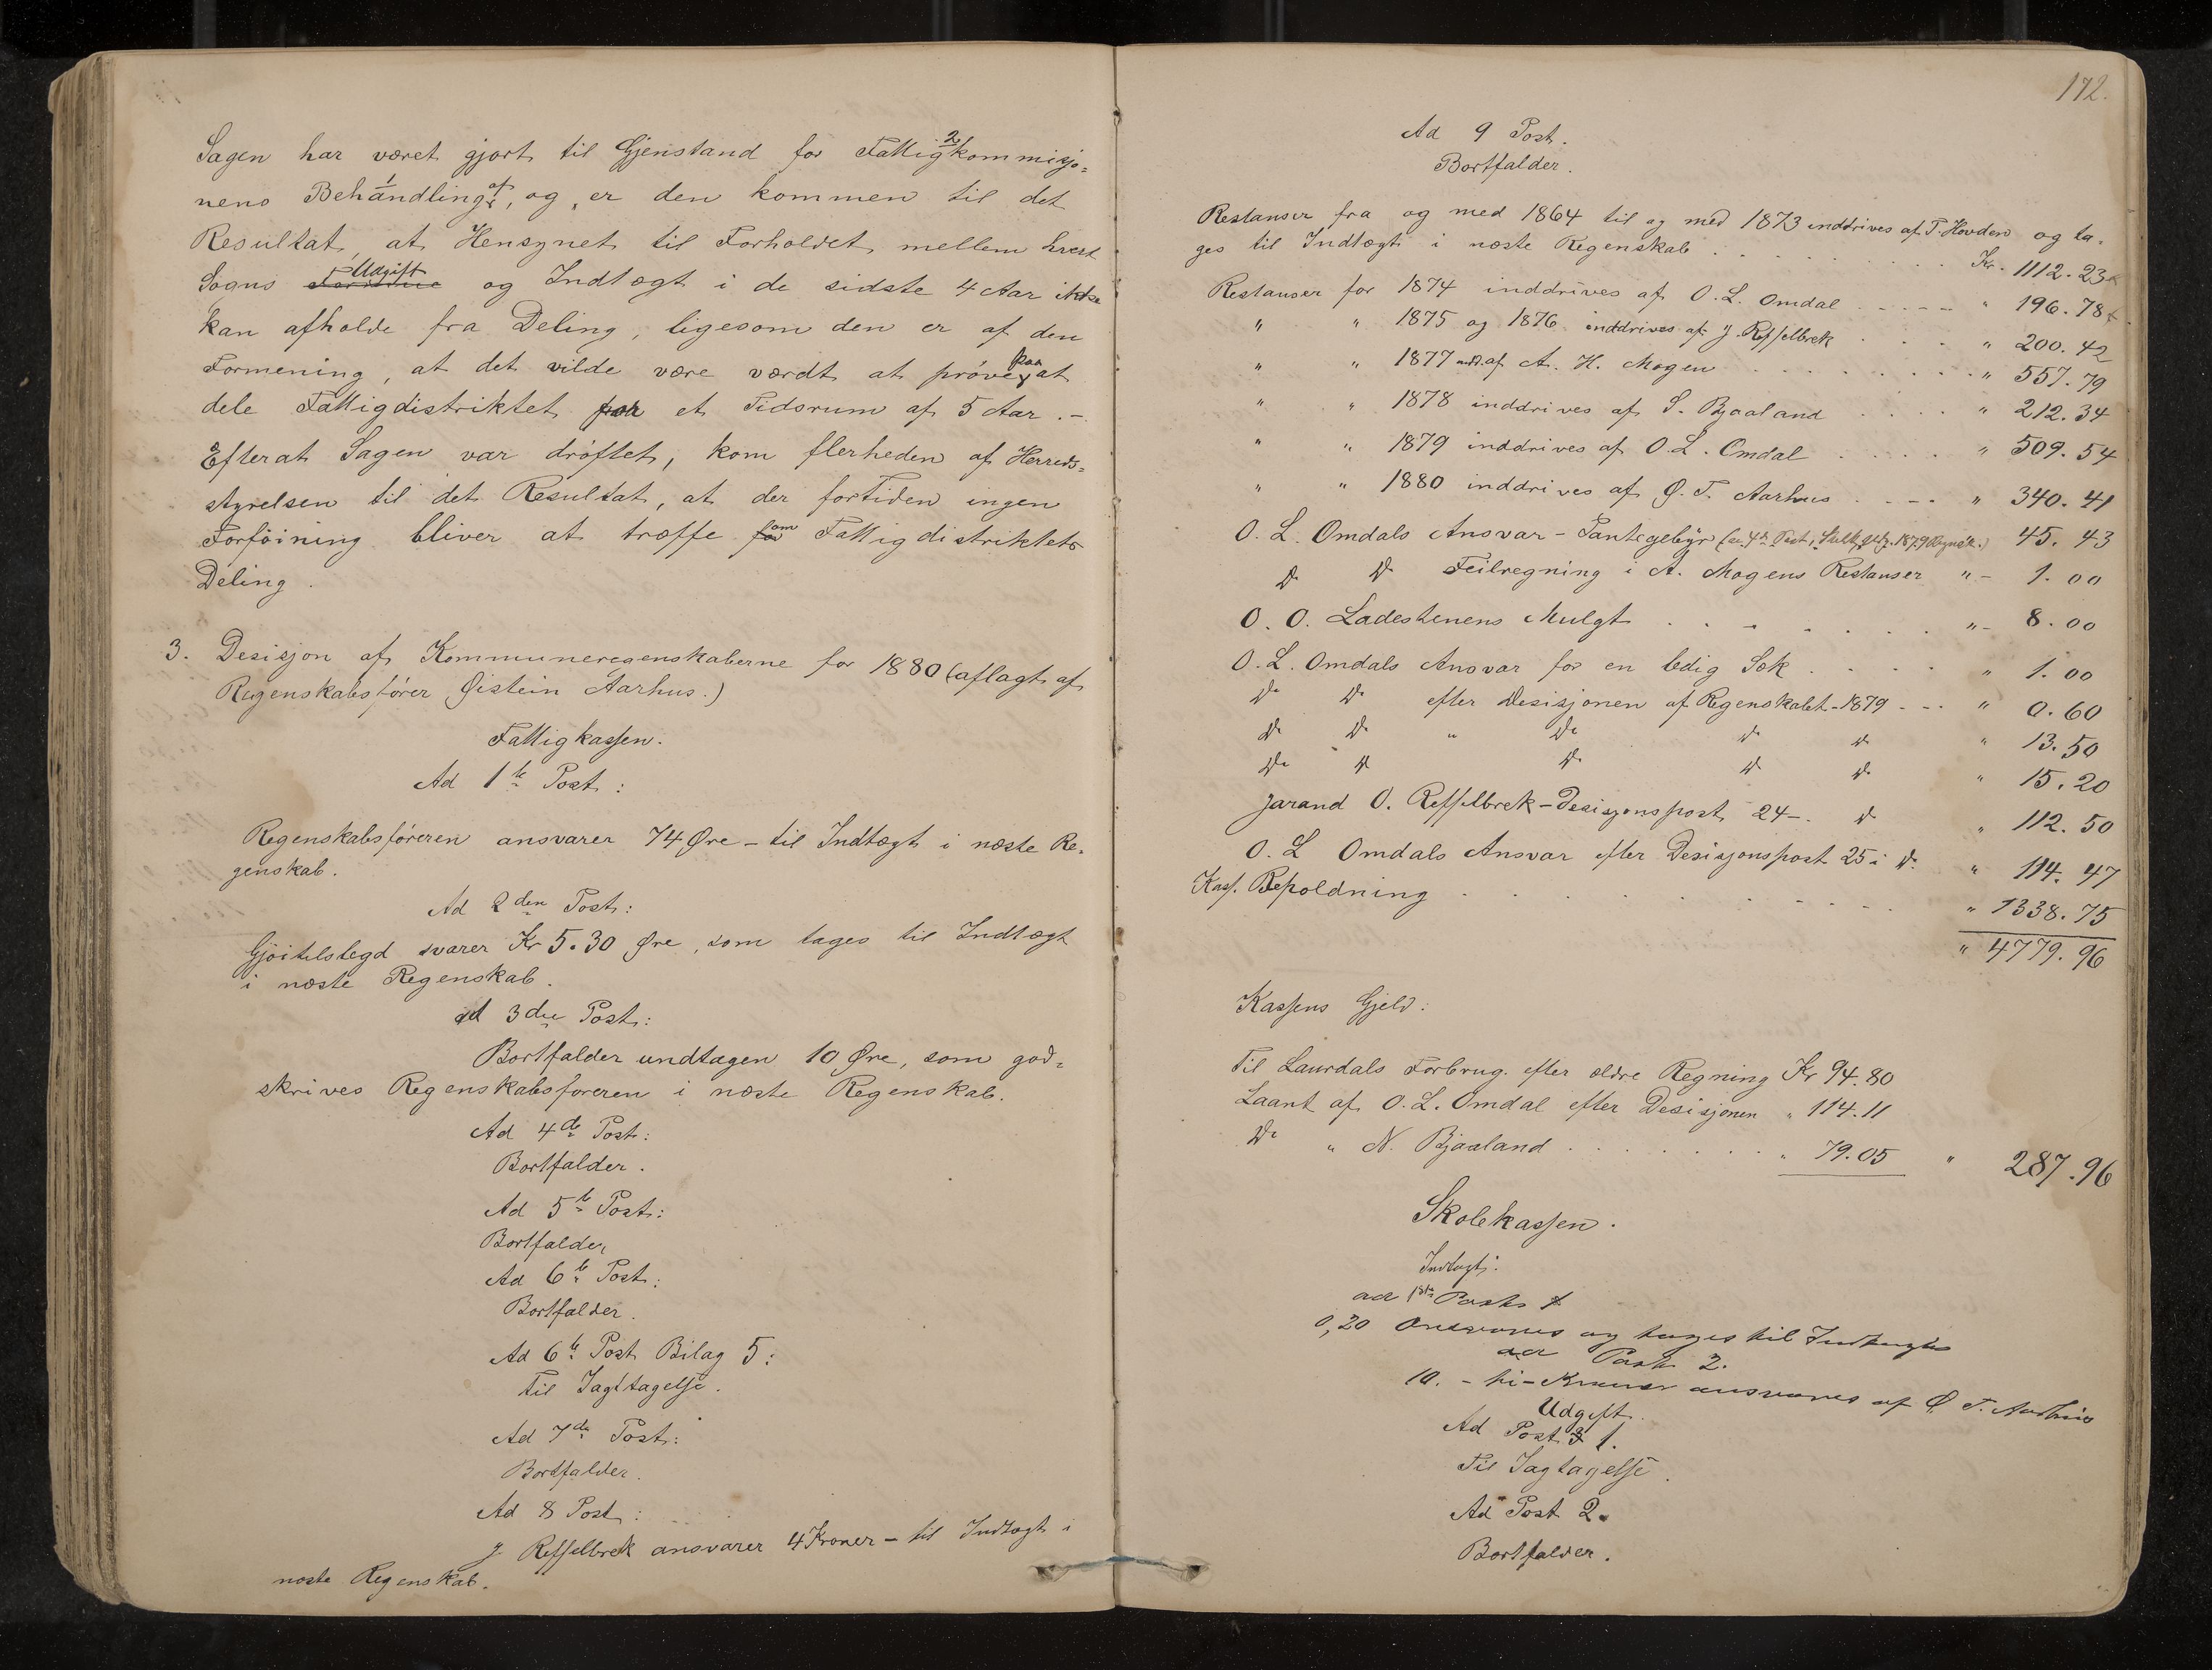 Sagen har været gjort til Gjenstand for Fattig 2/ kommisjo-
nens Behandling 1/ af, og er den kommen til det
Resultat, at Hensynet til Forholdet mellem hvert
Sogns Udgift og Indtægt i de sidste 4 Aar ikke
kan afholde fra Deling, ligesom den er af den
Formening, at det vilde være værdt at prøve paa at
dele Fattigdistriktet for et Tidsrum af 5 Aar. -
Efterat Sagen var drøftet, kom flerheden af Herreds-
styrelsen til det Resultat, at der fortiden ingen
Forføining bliver at træffe om Fattigdistriktets
Deling.
3. Desisjon af Kommuneregenskaberne for 1880 (aflagt af
Regenskabsfører Øistein Aarhus.)
Fattigkassen.
Ad 1te Post:
Regenskabsføreren ansvarer 74 Øre - til Indtægt i næste Re-
genskab.
Ad 2den Post:
Gjøitilslegd svarer Kr 5.30 Øre, som tages til Indtægt
i næste Regenskab.
ad 3die Post:
Bortfalder undtagen 10 Øre, som god-
skrives Regenskabsføreren i næste Regenskab.
Ad 4de Post:
Bortfalder.
Ad 5te Post:
Bortfalder
Ad 6te Post:
Bortfalder.
Ad 6te Post Bilag 5:
Til Iagttagelse.
Ad 7de Post:
Bortfalder.
Ad 8 Post:
J. Reffelbrek ansvarer 4 Kroner - til Indtægt i
næste Regenskab.
172.
Ad 9 Post.
Bortfalder.
Restanser fra og med 1864 til og med 1873 inddrives af T. Hovden og ta-
ges til Indtægt i næste Regenskab . . . . Kr. 1112.23
Restanser for 1874 inddrives af O. L. Omdal - - - - " 196.78
" " 1875 og 1876 inddrives af J. Reffelbrek . . . " 200.42
" " 1877 indd. af A. H. Mogen . . . . " 557.79
" " 1878 inddrives af S. Bjaaland . . . . " 212.34
" " 1879 inddrives af O. L. Omdal . . . . " 509.54
" " 1880 inddrives af Ø. T. Aarhus . - - - " 340.41
O. L. Omdals Ansvar - Pantegebyr 45.43
Do Do Feilregning i A. Mogens Restanser " - 1.00
O. O. Ladestenens Mulgt . . . . " - 8.00
O. L. Omdals Ansvar for en ledig Sæk . . . . " 1.00
Do Do efter Desisjonen af Regenskabet - 1879 - - - " 0.60
Do Do " Do Do Do " 13.50
Do Do Do Do Do " 15.20
Jarand O. Reffelbrek - Desisjonspost 24 - . Do " 112.50
O. L Omdals Ansvar efter Desisjonspost 25 i Do. " 114.47
Kass. Beholdning . . . . " 1338.75
" 4779.96
Kassens Gjeld:
Til Laurdals Forbrug. efter ældre Regning Kr 94.80
Laant af O. L. Omdal efter Desisjonen " 114.11
Do " N. Bjaaland . . . . " 79.05 " 287.96
Skolekassen.
Indtægt.
ad 1ste Post
0,20 Ansvares og tages til Indtægt
ad Post 2.
10. - ti - Kroner ansvares af Ø. T. Aarhus
Udgift.
Ad Post 1.
Til Iagtagelse.
Ad Post 2.
Bortfalder.